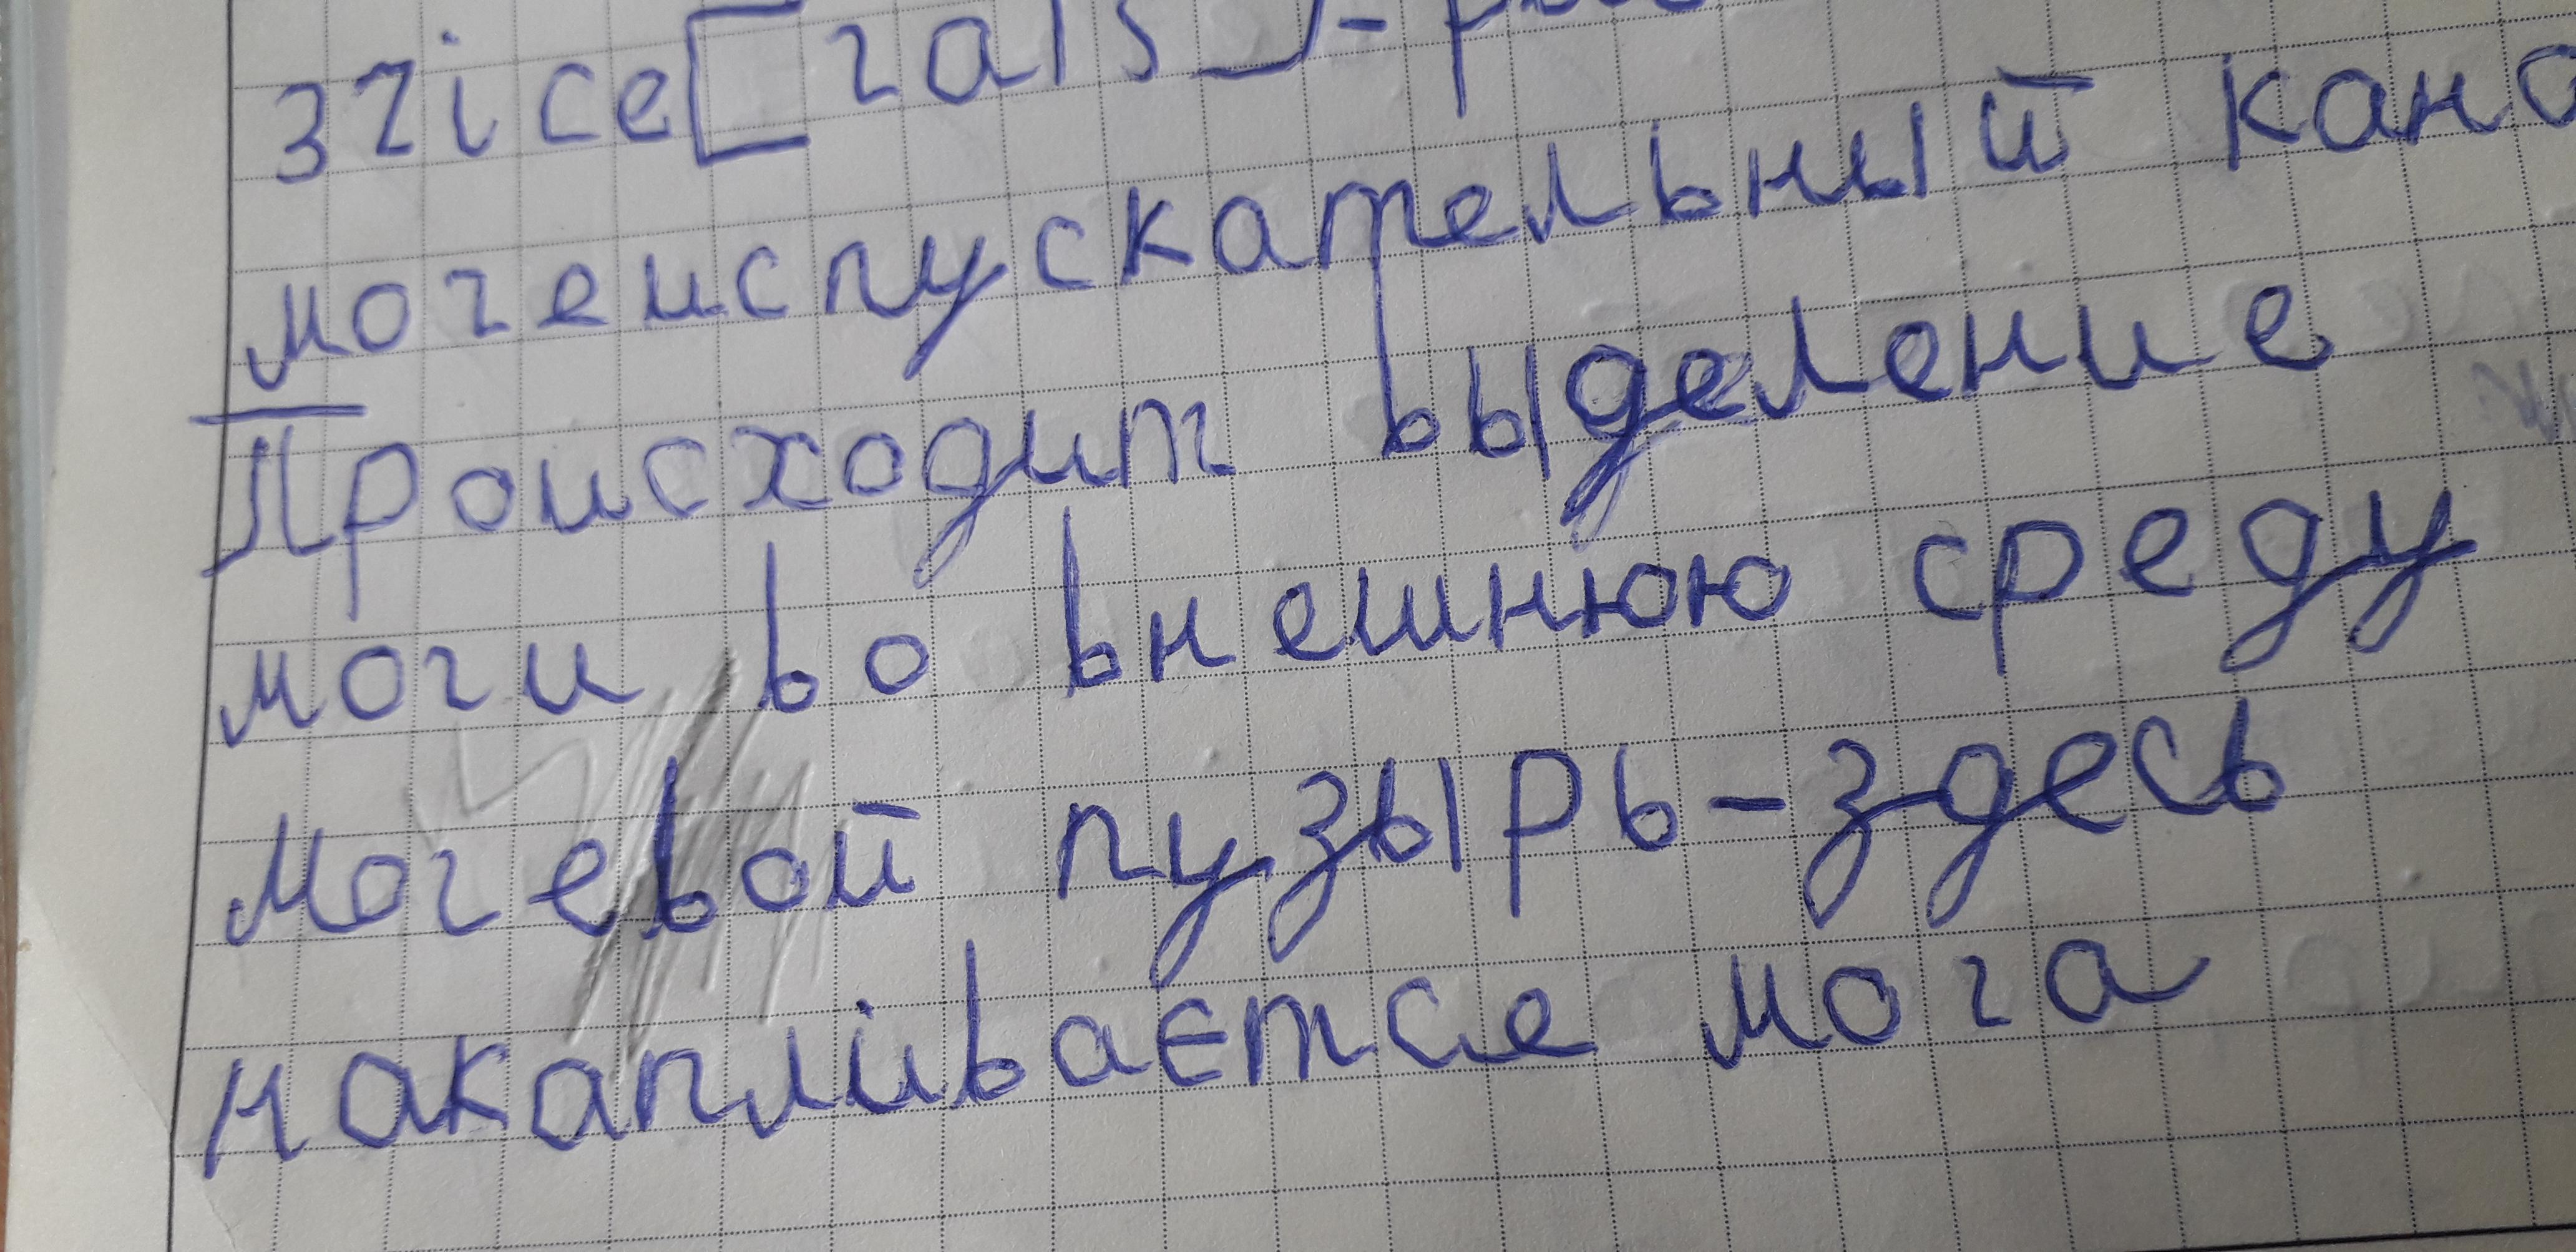 3 rice [raıs] -
мочеиспускательный кана
Происходит выделение
мочи во внешнюю среду
Мочевой пузырь - здесь
накапливается моча